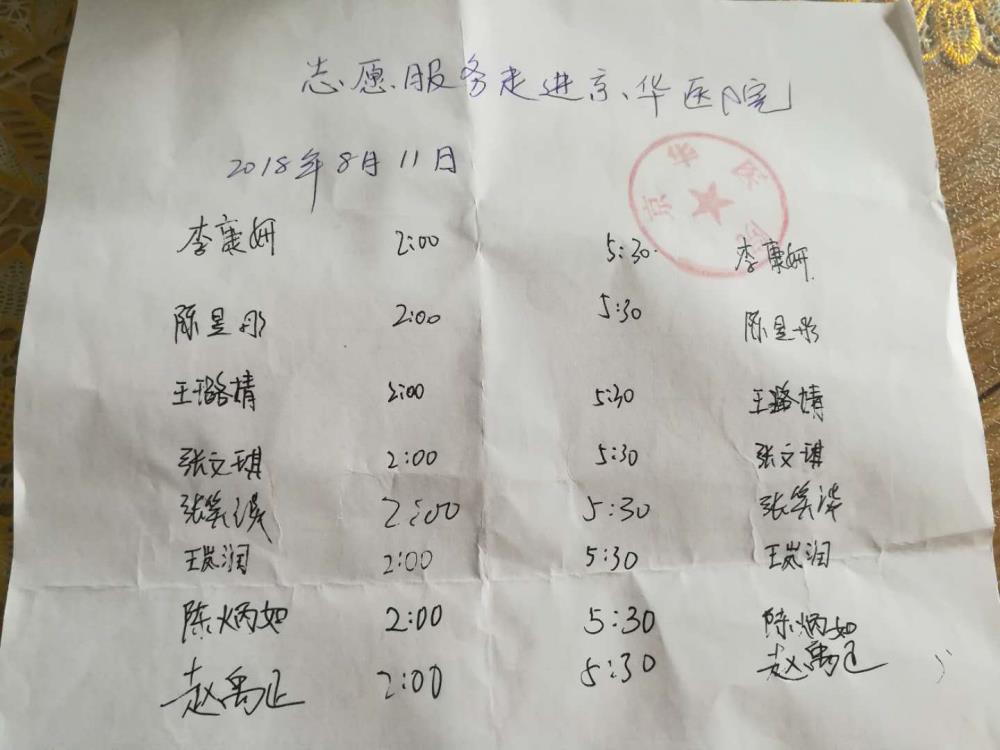 志愿服务走进京华医院
2018年8月11日
京华医院
李康妍 2:00 5:30 李康妍
陈昱彤 2:00 5:30 陈昱彤
王璐婧 2:00 5:30 王璐婧
张文琪 2:00 5:30 张文琪
张笑 2:00 5:30 张笑
王岚润 2:00 5:30 王岚润
陈炳如 2:00 5:30 陈炳如
赵禹正 2:00 5:30 赵禹正